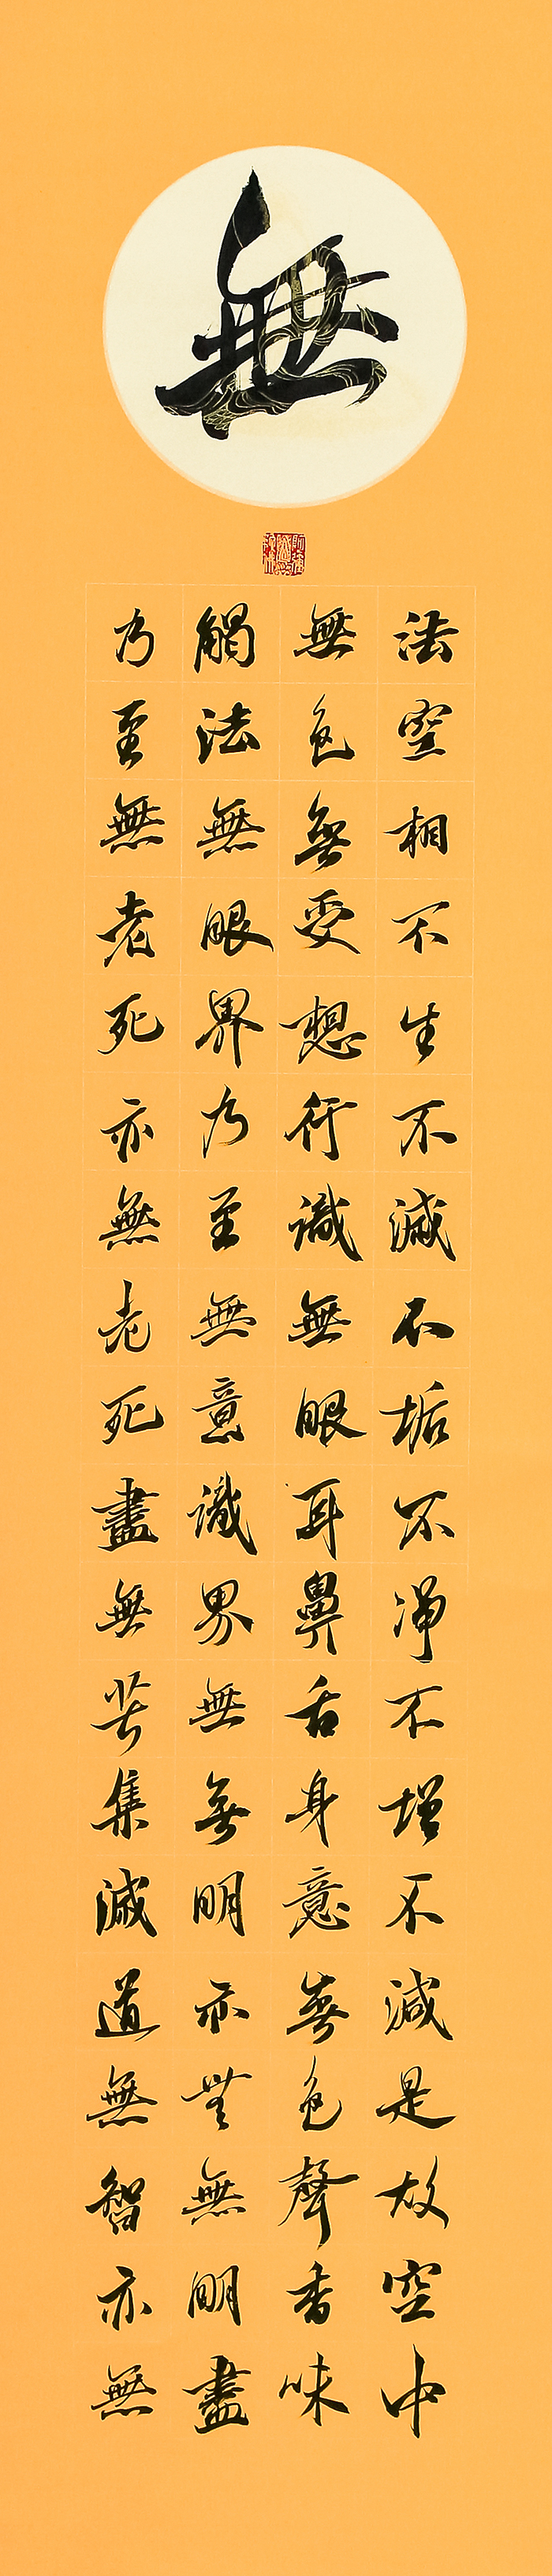 無
法空相不生不滅不垢不淨不增不減是故空中
無色無受想行識無眼耳鼻舌身意無色聲香味
觸法無眼界乃至無意識界無無明亦無無明盡
乃至無老死亦無老死盡無苦集滅道無智亦無